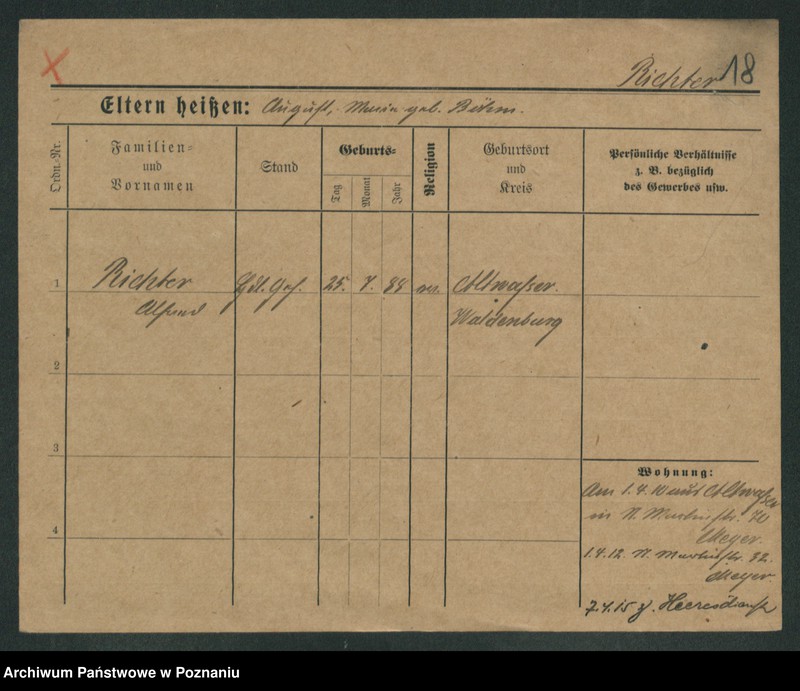 Richter 18
Eltern heißen: August, Marie geb. Böhm.
Ordn.-Nr.
Familien-
und
Vornamen
Stand
Geburts-
Tag
Monat
Jahr
Religion
Geburtsort
und
Kreis
Persönliche Verhältnisse
z. B. bezüglich
des Gewerbes usw.
1 Richter Hdl. Geh. 25. 7. 88 Altwasser.
Alfred Waldenburg
2
3
4
Wohnung:
Am 1.4.10 aus Altwasser
in N. Martinstr. 70
Meyer.
1.4.12. N. Martinstr. 32.
Meyer.
7.4.15 z. Heeresdienst
Archiwum Państwowe w Poznaniu